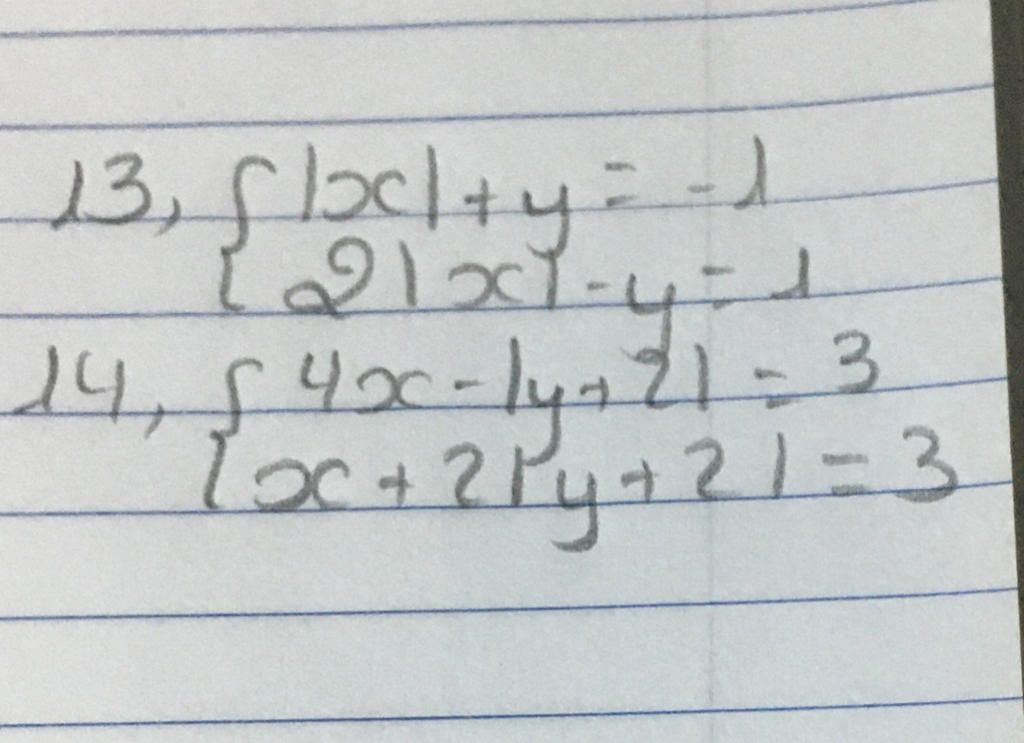 13, { |x| + y = -1
{ 2|x| - y = 1
14, { 4x - |y + 2| = 3
{ x + 2|y + 2| = 3